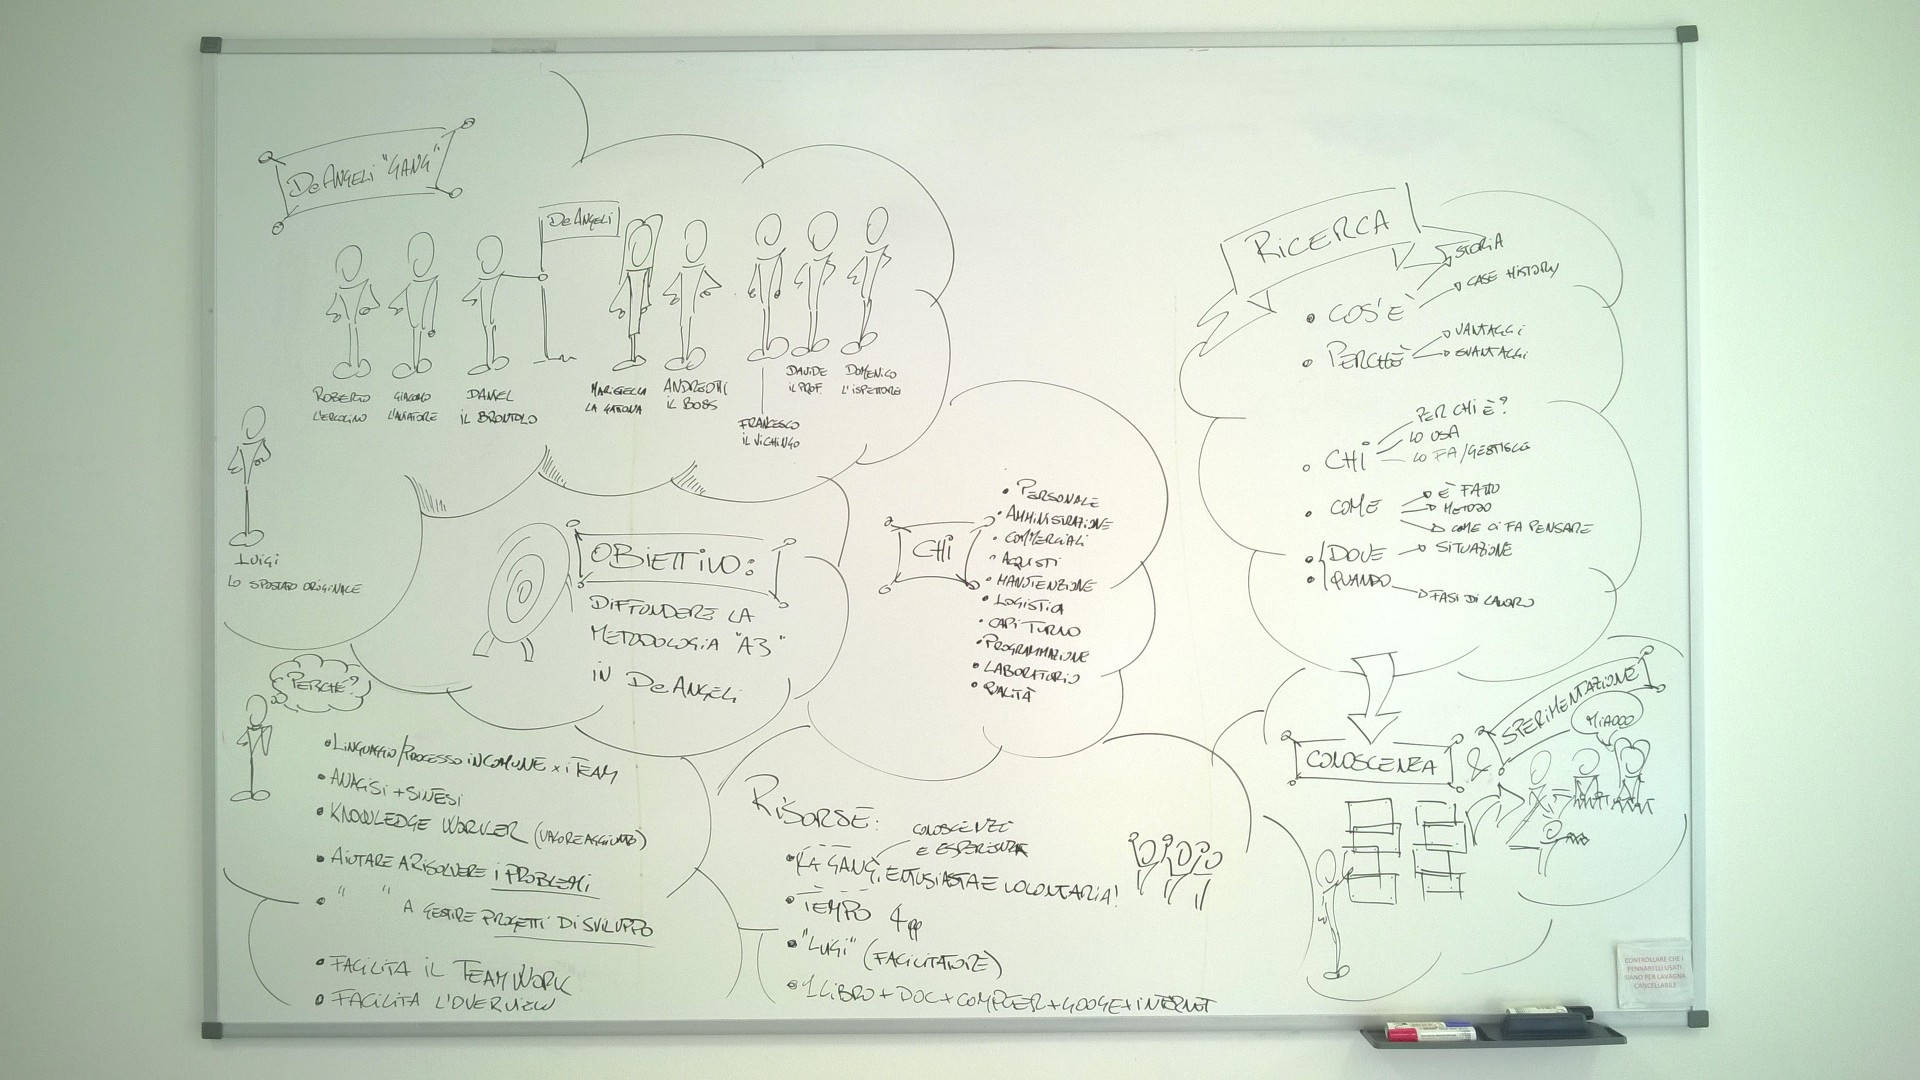 DeANGELI "GANG"
DeANGELI
ROBERTO
L'ERCOLINO
GIACOMO
L'AVIATORE
DANIEL
IL BRONTOLO
MARISELLA
LA GATTONA
ANDREOTTI
IL BOSS
FRANCESCO
IL VICHINGO
DAVIDE
IL PROF.
DOMENICO
L'ISPETTORE
LUIGI
LO SPOSTATO ORIGINALE
OBIETTIVO:
DIFFONDERE LA
METODOLOGIA "A3"
IN DeANGELI
CHI
• PERSONALE
• AMMINISTRAZIONE
• COMMERCIALI
• AQUISTI
• MANUTENZIONE
• LOGISTICA
• CAPI TURNO
• PROGRAMMAZIONE
• LABORATORIO
• QUALITÀ
PERCHÈ?
• LINGUAGGIO/PROCESSO IN COMUNE x i TEAM
• ANALISI + SINTESI
• KNOWLEDGE WORKER (VALORE AGGIUNTO)
• AIUTARE A RISOLVERE i PROBLEMI
• " " A GESTIRE PROGETTI DI SVILUPPO
• FACILITA IL TEAMWORK
• FACILITA L'OVERVIEW
RISORSE:
CONOSCENZE
E ESPERIENZA
• LA GANG, ENTUSIASTA E VOLONTARIA!
• TEMPO 4 gg
• "LUIGI" (FACILITATORE)
• 1 LIBRO + DOC + COMPUTER + GOOGLE + INTERNET
RICERCA
• COS'È
STORIA
CASE HISTORY
• PERCHÈ
VANTAGGI
SVANTAGGI
• CHI
PER CHI È?
LO USA
LO FA/GESTISCE
• COME
È FATTO
METODO
COME CI FA PENSARE
• DOVE
SITUAZIONE
• QUANDO
FASI DI LAVORO
CONOSCENZA & SPERIMENTAZIONE
MIAOOO
CONTROLLARE CHE I
PENNARELLI USATI
SIANO PER LAVAGNA
CANCELLABILE